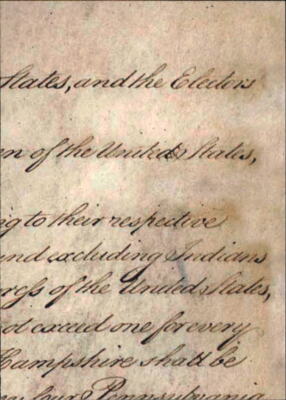 States, and the Electors
en of the United States,
ng to their respective
and excluding Indians
ress of the United States,
ot exceed one for every
Hampshire shall be
four, Pennsylvania